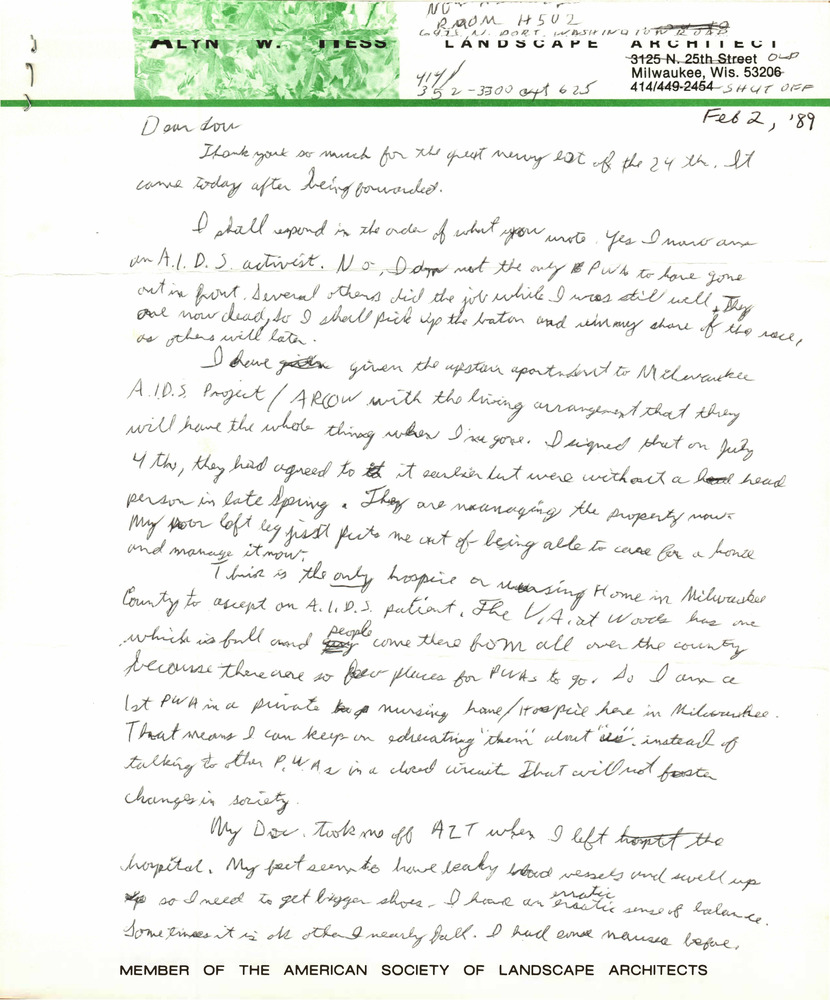 ROOM H502
6925 N. PORT WASHINGTON ROAD
ALYN W. HESS LANDSCAPE ARCHITECT
3125 N. 25th Street OLD
Milwaukee, Wis. 53206
414/449-2454 SHUT OFF
414/
352-3300 ext 625
Feb 2, '89
Dear Lou
Thank you so much for the great newsy letter of the 24 th. It
came today after being forwarded.
I shall respond in the order of what you wrote. Yes I now am
an A.I.D.S. activist. No, I am not the only PWA to have gone
out in front. Several others did the job while I was still well. They
are now dead, so I shall pick up the baton and run my share of the race,
as others will later.
I have given the upstair apartment to Milwaukee
A.I.D.S. Project / ARCW with the living arrangement that they
will have the whole thing when I'm gone. I signed that on July
4 th, they had agreed to it earlier but were without a head
person in late Spring. They are managing the property now.
My poor left leg just puts me out of being able to care for a house
and manage it now.
This is the only hospice or nursing Home in Milwaukee
County to accept an A.I.D.S. patient. The V.A. at Woods has one
which is full and people come there from all over the country
because there are so few places for PWAs to go. So I am a
1st PWA in a private nursing home/Hospice here in Milwaukee.
That means I can keep on educating "them" about "us" instead of
talking to other P.W.A.s in a closed circuit that will not foster
changes in society.
My Doc. took me off AZT when I left the
hospital. My feet seem to have leaky blood vessels and swell up
so I need to get bigger shoes. I have an erratic
erratic sense of balance.
Sometimes it is ok other I nearly fall. I had some nausea before,
MEMBER OF THE AMERICAN SOCIETY OF LANDSCAPE ARCHITECTS